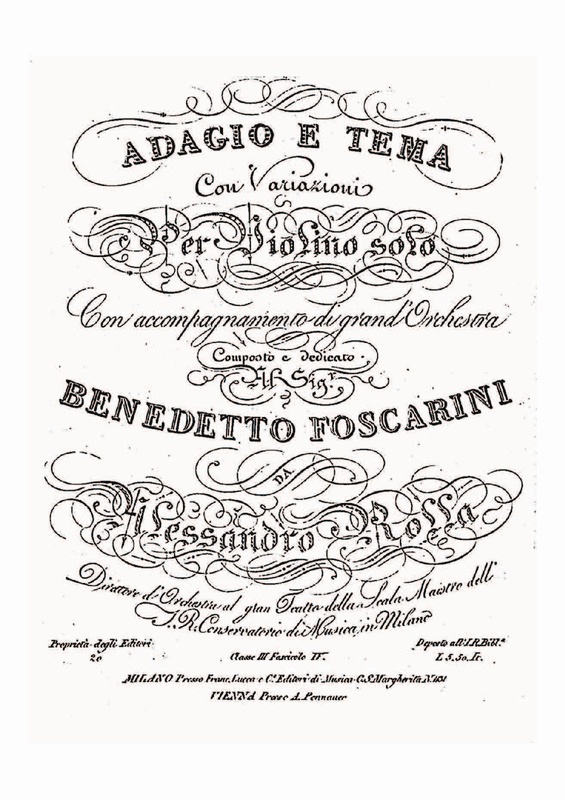 ADAGIO E TEMA
Con Variazioni
Per Violino solo
Con accompagnamento di grand'Orchestra
Composto e dedicato
Al Sig.r
BENEDETTO FOSCARINI
DA
Alessandro Rolla
Direttore d'Orchestra al gran Teatro della Scala Maestro dell'
I. R. Conservatorio di Musica in Milano
Proprietà degli Editori
Deposto all'I.R.Bibl.a
20
Classe III Fascicolo IV.
L 5.50. It.
MILANO Presso Franc. Lucca e C.i Editori di Musica C.S. Margherita N.
VIENNA Presso A. Pennauer